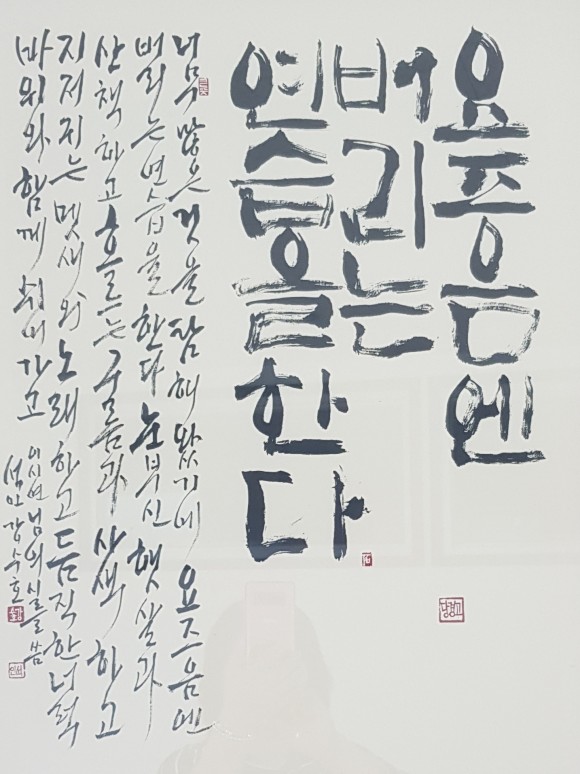 요즈음엔
버리는
연습을한다
너무 많은 것을 탐해 왔기에 요즈음엔
버리는 연습을 한다 눈부신 햇살과
산책하고 흐르는 구름과 사색하고
지저귀는 멧새와 노래하고 듬직한 너럭
바위와 함께 쉬며 가고
이시연님의 시를 씀
강수호